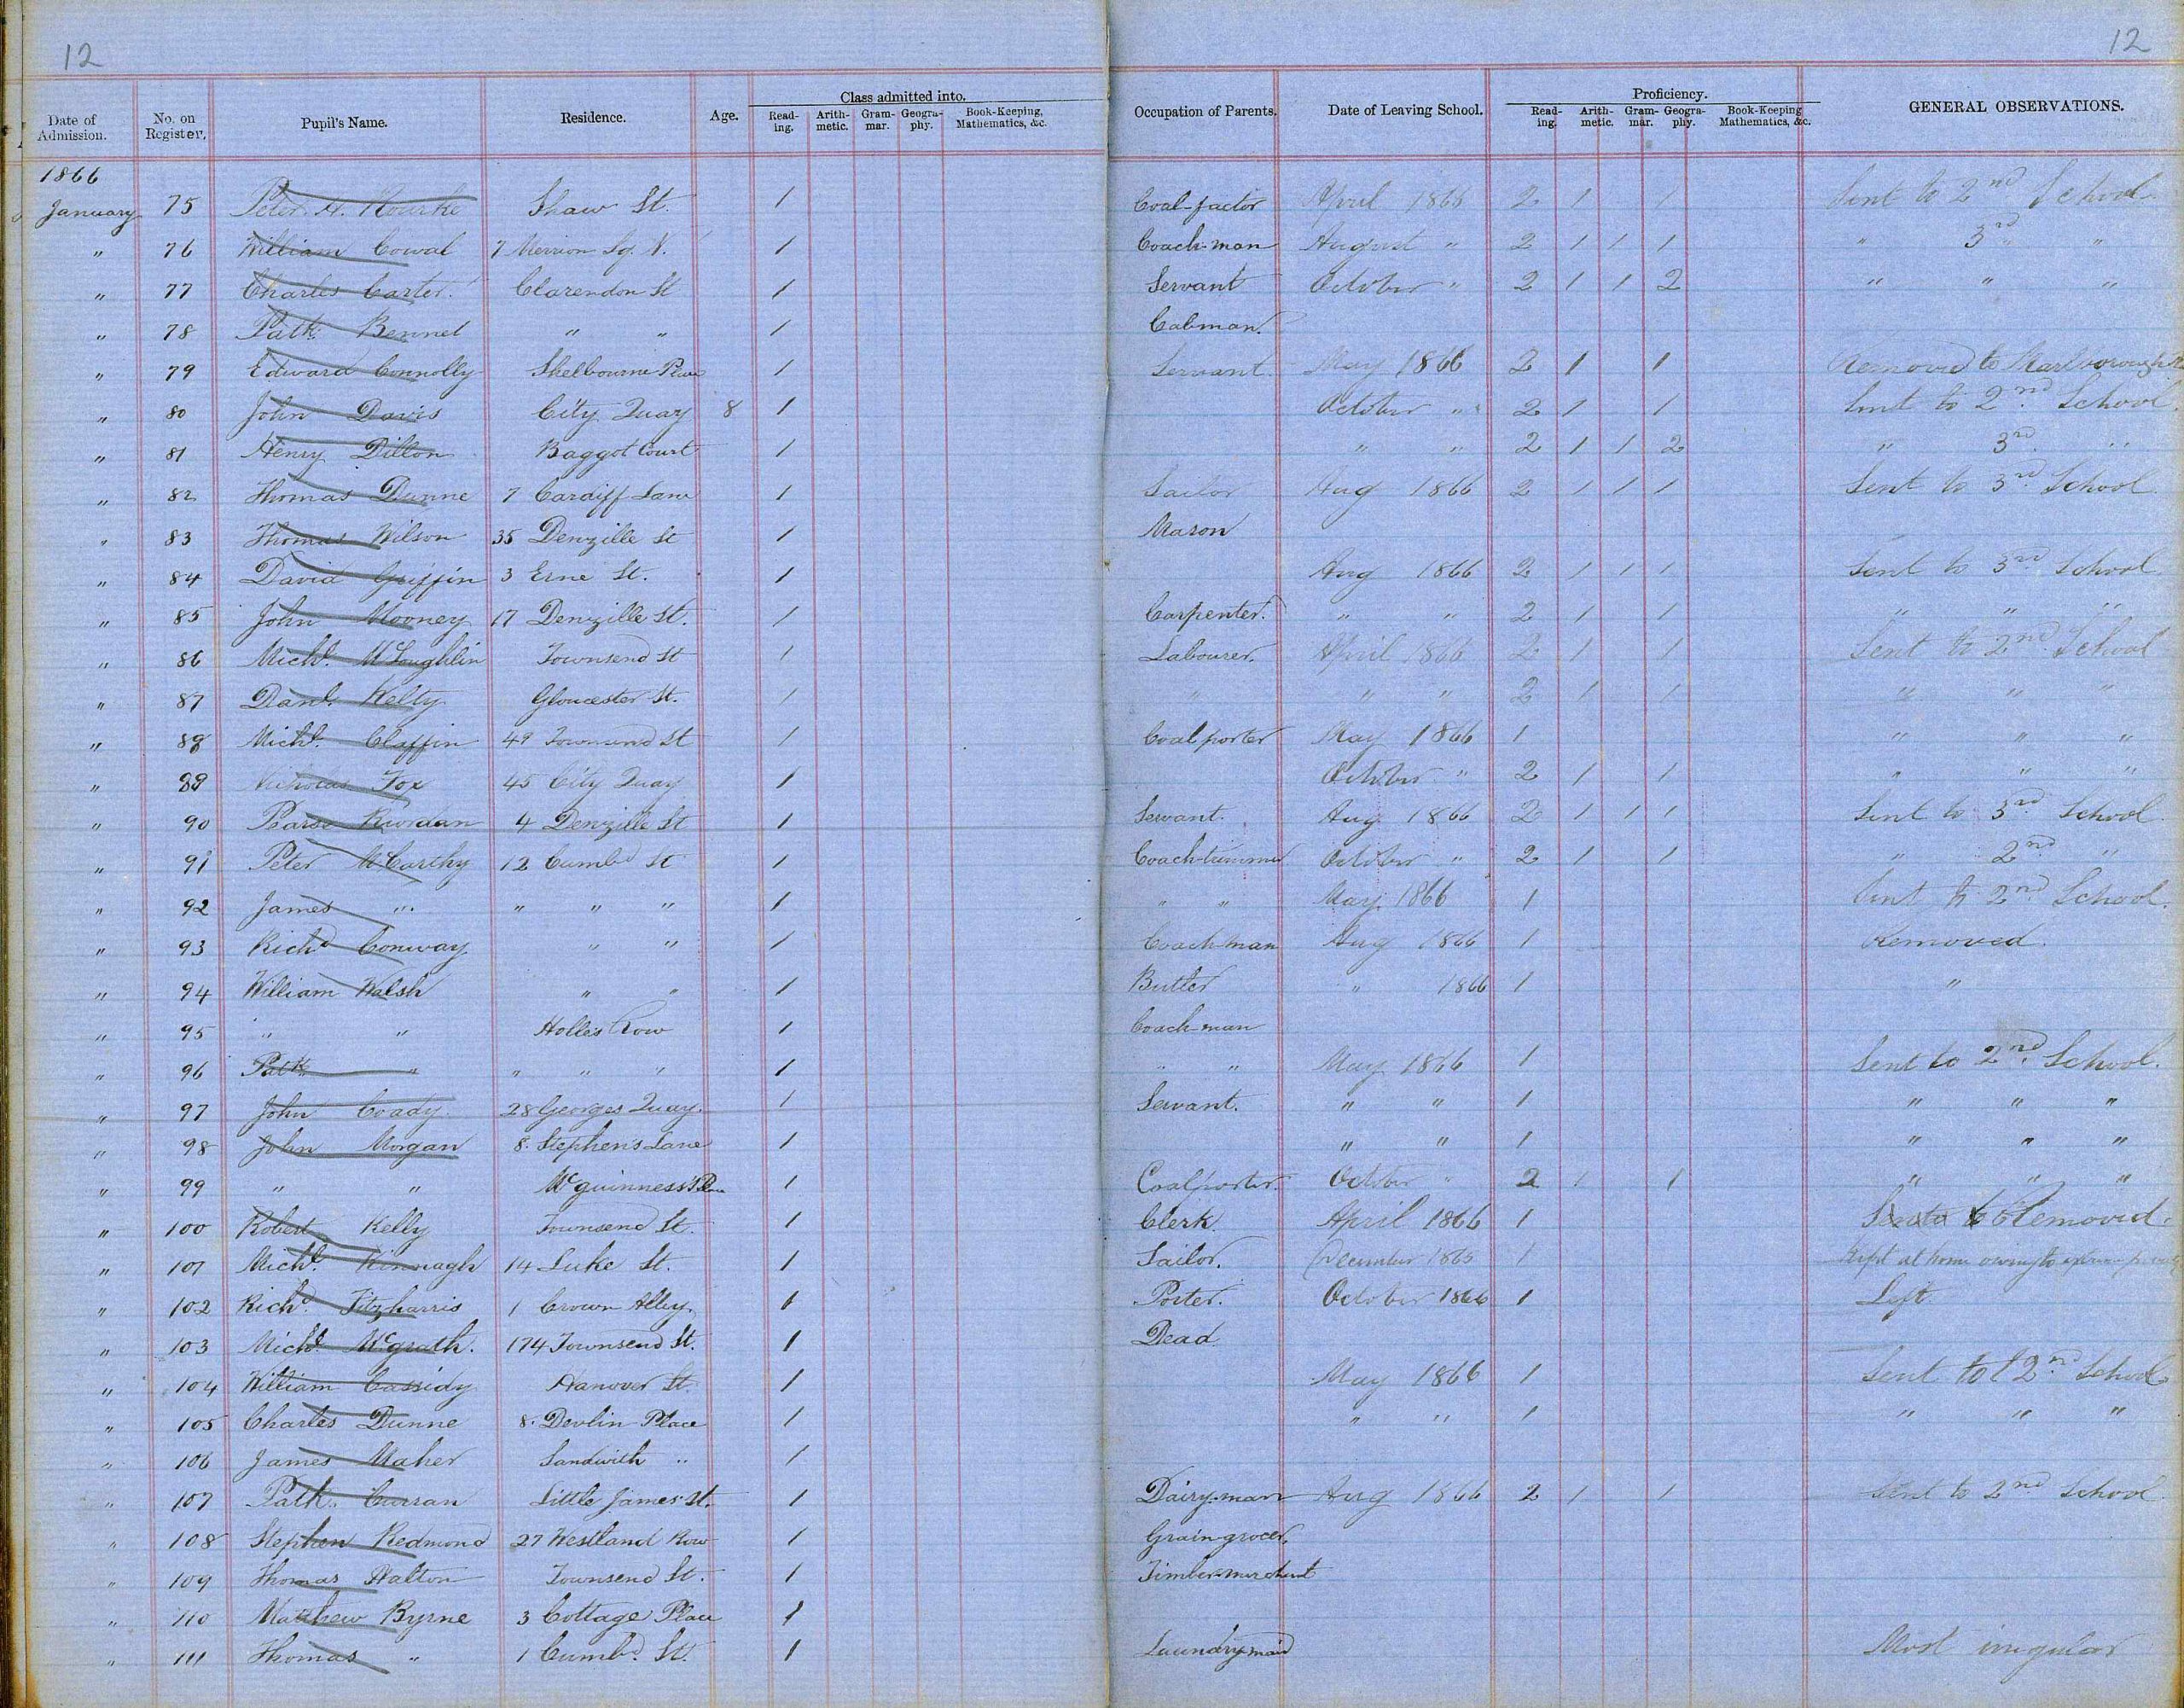 12 12
Class admitted into. Proficiency.
Date of Admission. No. on Register, Pupil's Name. Residence. Age. Read-ing. Arith-metic. Gram-mar. Geogra-phy. Book-Keeping, Mathematics, &c. Occupation of Parents. Date of Leaving School. Read-ing. Arith-metic. Gram-mar. Geogra-phy. Book-Keeping Mathematics, &c. GENERAL OBSERVATIONS.
1866
January 75 Peter A. Rourke Shaw St. 1 Coal-factor April 1866 2 1 1 Sent to 2nd School
" 76 William Cowal 7 Merrion Sq. N. 1 Coach-man August " 2 1 1 1 " 3rd "
" 77 Charles Carter. Clarendon St 1 Servant October " 2 1 1 2 " " "
" 78 Patk. Bennet " " 1 Cabman.
" 79 Edward Connolly Shelbourne Place 1 Servant May 1866 2 1 1 Removed to
" 80 John Davis City Quay 8 1 October " 2 1 1 Sent to 2nd School
" 81 Henry Dillon Baggot Court 1 " " 2 1 1 2 " 3rd "
" 82 Thomas Dunne 7 Cardiff Lane 1 Sailor Aug 1866 2 1 1 1 Sent to 3rd School
" 83 Thomas Wilson 35 Denzille St 1 Mason
" 84 David Griffin 3 Erne St. 1 Aug 1866 2 1 1 1 Sent to 3rd School
" 85 John Mooney 17 Denzille St. 1 Carpenter. " " 2 1 1 " " "
" 86 Michl. McLoughlin Townsend St 1 Labourer. April 1866 2 1 1 Sent to 2nd School
" 87 Danl. Kelty Gloucester St. 1 " " " 2 1 1 " " "
" 88 Michl. Claffin 49 Townsend St 1 Coal porter May 1866 1 " " "
" 89 Nicholas Fox 45 City Quay 1 October " 2 1 1 " " "
" 90 Riordan 4 Denzille St 1 Servant. Aug 1866 2 1 1 1 Sent to 3rd School
" 91 Peter McCarthy 12 Cumbd St 1 Coach-trimmer October " 2 1 1 " 2nd "
" 92 James " " " " 1 " " May 1866 1 Sent to 2nd School.
" 93 Richd Conway " " 1 Coach-man Aug 1866 1 Removed.
" 94 William Walsh " " 1 Butler " 1866 1 "
" 95 " " Holles Row 1 Coach-man
" 96 Patk. " " " " 1 " " May 1866 1 Sent to 2nd School.
" 97 John Coady. 28 Georges Quay. 1 Servant. " " 1 " " "
" 98 John Morgan 8. Stephens Lane 1 " " 1 " " "
" 99 " " McGuinness's Place 1 Coalporter. October " 2 1 1 " " "
" 100 Robert Kelly Townsend St. 1 Clerk April 1866 1 Removed.
" 101 Michl. Kinnagh 14 Luke St. 1 Sailor. December 1865 1 Kept at home owing to
" 102 Richd. Fitzharris 1 Crown Alley. 1 Porter. October 1866 1 Left
" 103 Michl. McGrath. 174 Townsend St. 1 Dead
" 104 William Cassidy Hanover St. 1 May 1866 1 Sent to 2nd School
" 105 Charles Dunne 8. Devlin Place 1 " " 1 " " "
" 106 James Maher Sandwith " 1
" 107 Patk. Curran Little James St. 1 Dairy-man Aug 1866 2 1 1 Sent to 2nd School
" 108 Stephen Redmond 27 Westland Row 1 Grain-grocer.
" 109 Thomas Dalton Townsend St. 1 Timber-merchant
" 110 Matthew Byrne 3 Cottage Place 1
" 111 Thomas " 1 Cumbd. St. 1 Laundry-maid Most irregular